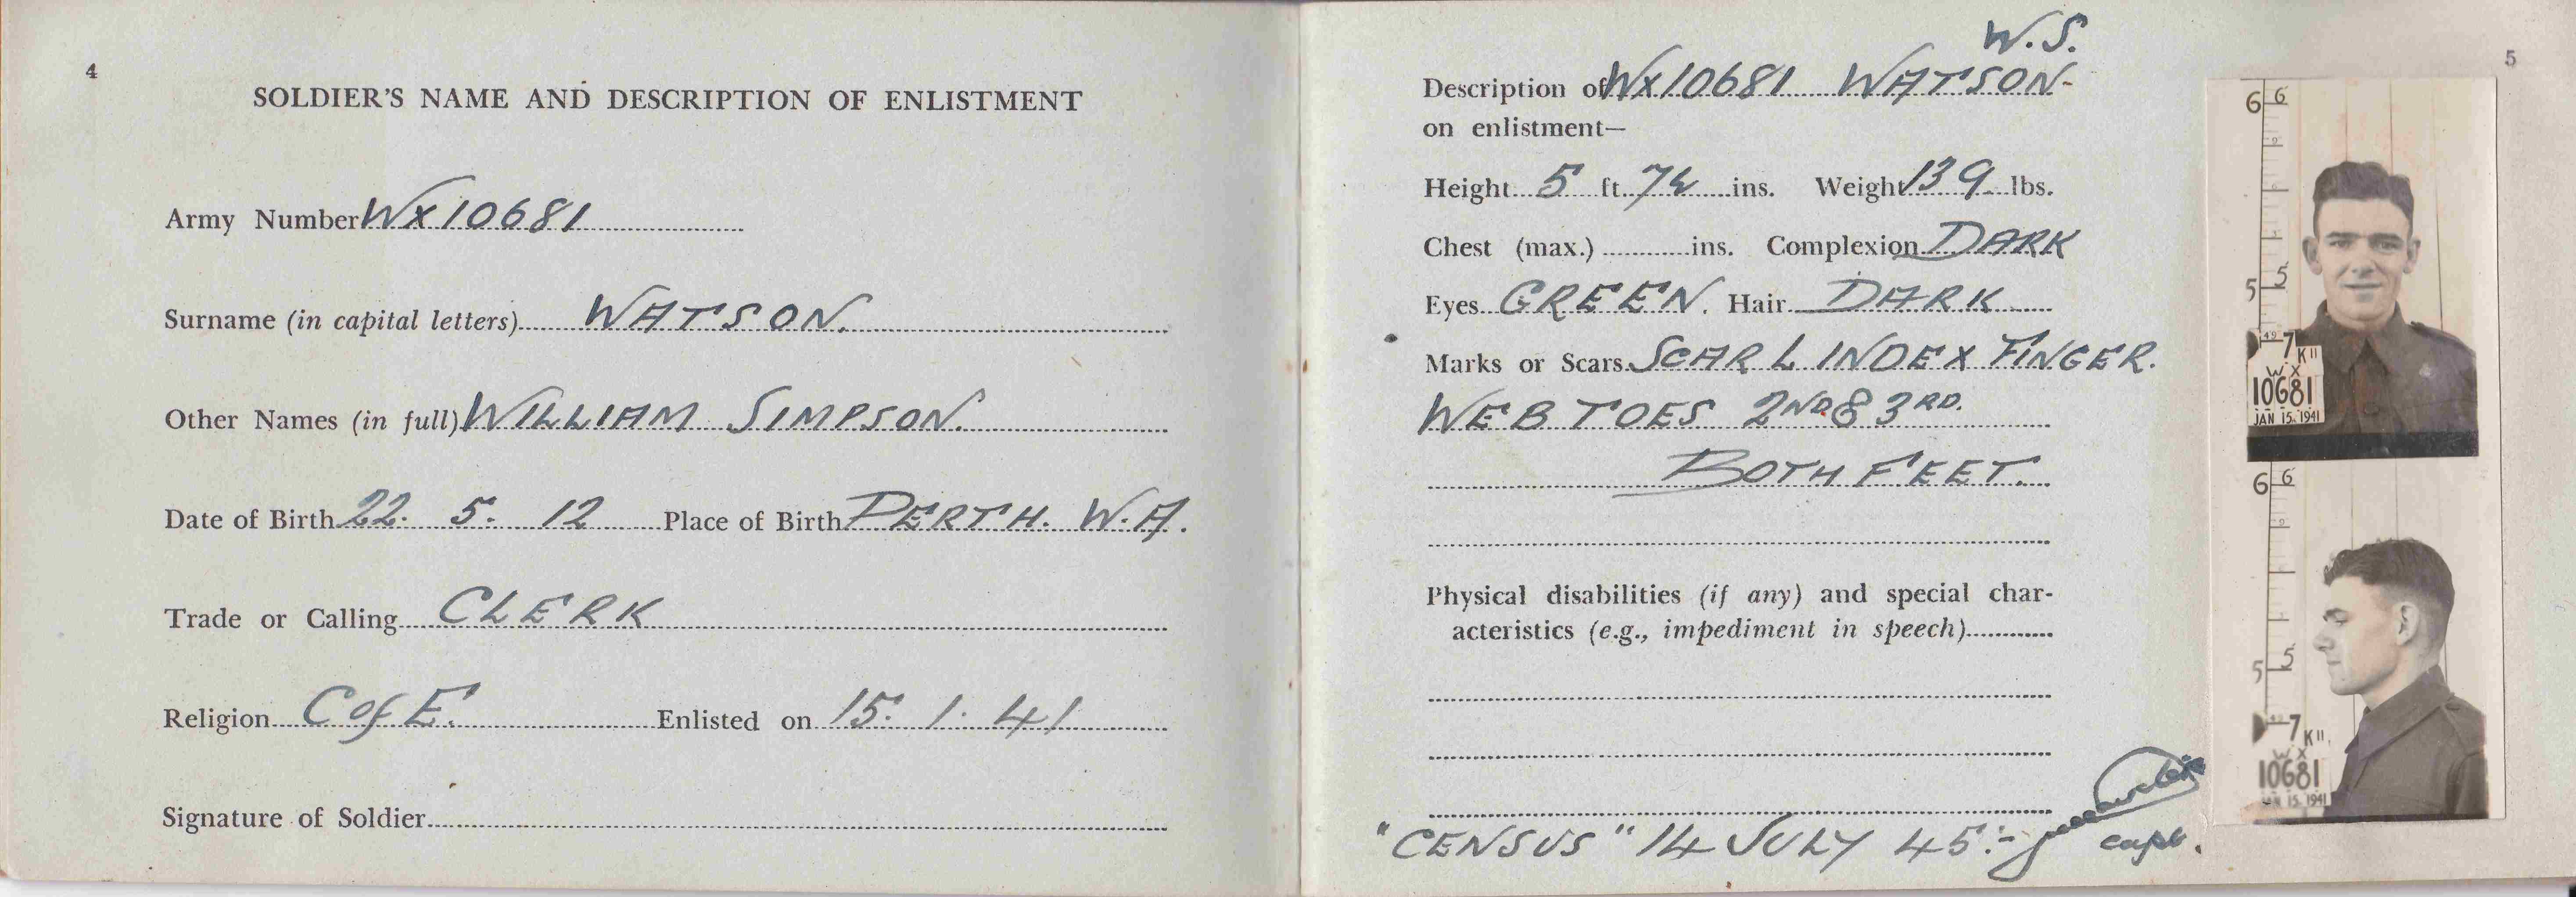 4
SOLDIER'S NAME AND DESCRIPTION OF ENLISTMENT
Army Number WX10681
Surname (in capital letters) WATSON.
Other Names (in full) WILLIAM SIMPSON.
Date of Birth 22. 5. 12 Place of Birth PERTH. W.A.
Trade or Calling CLERK
Religion C of E. Enlisted on 15. 1. 41
Signature of Soldier
5
W.S.
Description of WX10681 WATSON-
on enlistment—
Height 5 ft. ins. Weight 139 lbs.
Chest (max.) ins. Complexion DARK
Eyes GREEN. Hair DARK
Marks or Scars SCAR L INDEX FINGER.
WEB TOES 2ND & 3RD.
BOTH FEET.
Physical disabilities (if any) and special char-
acteristics (e.g., impediment in speech)
"CENSUS" 14 JULY 45:-
capt.
6 6
5 5
7 K11
WX
10681
JAN 15. 1941
6 6
5 5
7 K11
WX
10681
JAN 15. 1941